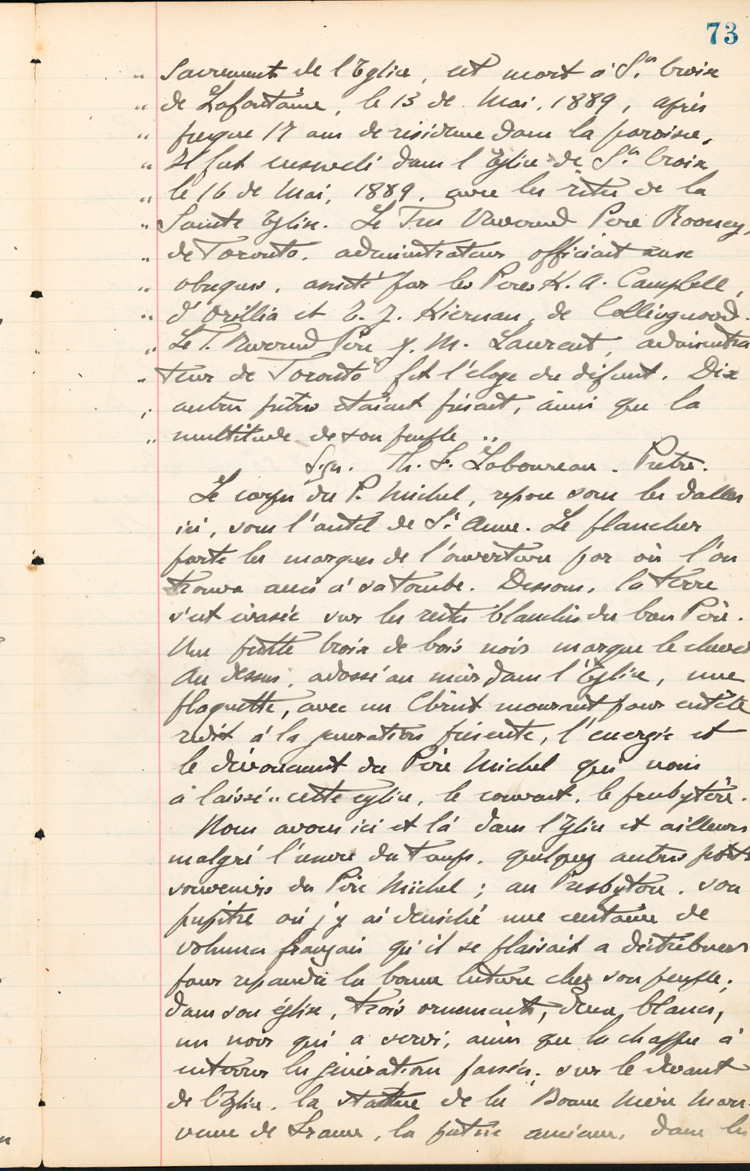 73
" Sacrements de l'Eglise, est mort à Ste Croix
" de Lafontaine, le 13 de Mai, 1889, après
" presque 17 ans de résidence dans la paroisse.
" Il fut enseveli dans l'Eglise de Ste Croix
" le 16 de Mai, 1889, avec les rites de la
" Sainte Eglise. Le Très Révérend Père Rooney,
" de Toronto, administrateur, officiait aux
" obsèques, assisté par les Pères K. A. Campbell,
" d'Orillia et E. J. Kiernan, de Collingwood.
" Le T. Révérend Père J. M. Laurent, administra
" teur de Toronto fit l'éloge du défunt. Dix
" autres prêtres étaient présent, ainsi que la
" multitude de son peuple "
Sgn. Th. F. Laboureau. Prêtre.
Le corps du P. Michel, repose sous les dalles
ici, sous l'autel de St Anne. Le plancher
porte les marques de l'ouverture par où l'on
trouve accès à sa tombe. Dessous, la terre
s'est évasée sur les restes blanchis du bon Père.
Une petite Croix de bois noir marque le chevet
Au dessus, adossé au mur dans l'Eglise, une
plaquette, avec un Christ mourant pour entête
redit à la génération présente, l'énergie et
le dévouement du Père Michel qui nous
a laissé cette église, le couvent, le presbytère.
Nous avons ici et là dans l'Eglise et ailleurs
malgré l'œuvre du Temps, quelques autres
souvenirs du Père Michel; au Presbytère, son
pupitre où j'y ai déniché une centaine de
volumes français qu'il se plaisait a distribuer
pour repandre la bonne lecture chez son peuple;
dans son église, trois ornements, deux blancs,
un noir qui a servi, ainsi que la chappe à
enterrer les générations passées; sur le devant
de l'Eglise, la statue de la Bonne Mère Marie
venue de France, la patrie ancienne, dans les